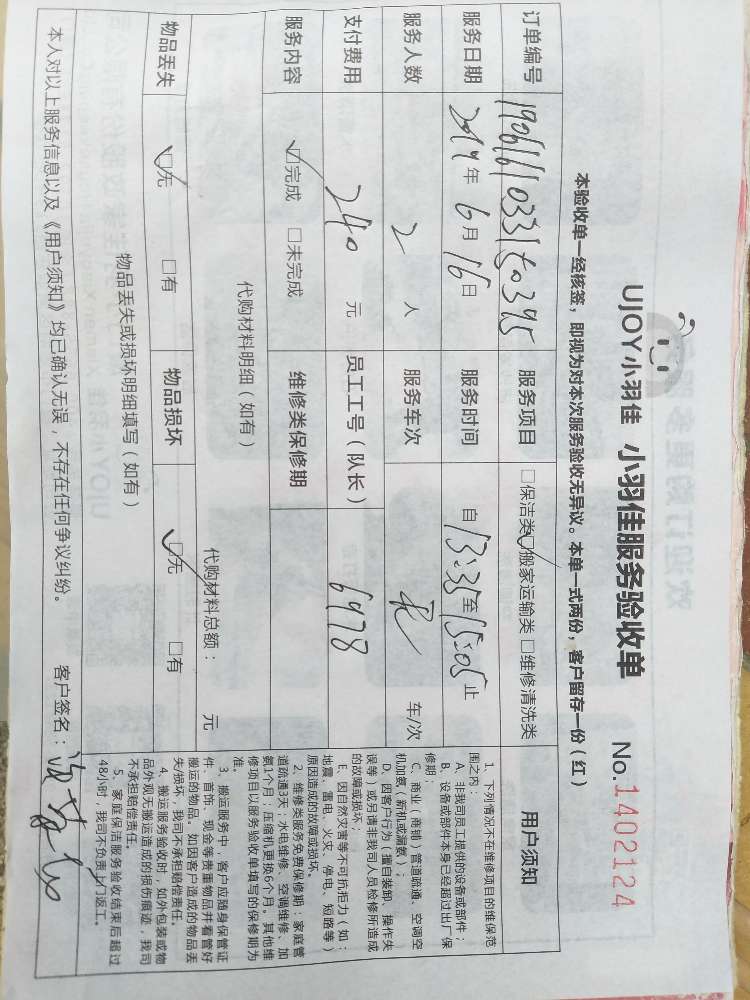 UJOY小羽佳 小羽佳服务验收单 No.1402124
本验收单一经核签，即视为对本次服务验收无异议。本单一式两份，客户留存一份（红）
订单编号 服务项目 □保洁类 ☑搬家运输类 □维修清洗类
服务日期 2019年6月16日 服务时间 自13:35至15:05止
服务人数 2人 服务车次 车/次
支付费用 240元 员工工号（队长） 6978
服务内容 ☑完成 □未完成 维修类保修期
代购材料明细（如有） 代购材料总额： 元
物品丢失 ☑无 □有 物品损坏 ☑无 □有
物品丢失或损坏明细填写（如有）
本人对以上服务信息以及《用户须知》均已确认无误，不存在任何争议纠纷。 客户签名：
用户须知
1、下列情况不在维修项目的维保范
围之内：
A、非我司员工提供的设备或部件；
B、设备或部件本身已经超过出厂保
修期；
C、商业（商铺）管道疏通、空调空
机加氨（新机或漏氨）；
D、因客户行为（擅自装卸、操作失
误等）或另请非我司人员检修所造成
的故障或损坏；
E、因自然灾害等不可抗拒力（如：
地震、雷电、火灾、停电、短路等）
原因造成的故障或损坏。
2、维修类服务免费保修期：家庭管
道疏通3天；水电维修、空调维修、加
氨1个月；压缩机更换6个月。其他维
修项目以服务验收单填写的保修期为
准。
3、搬运服务中，客户应随身保管证
件、首饰、现金等贵重物品并看管好
搬运的物品。如因客户造成的物品丢
失/损坏，我司不承担赔偿责任。
4、搬运服务验收时，如外包装或物
品外观无搬运造成的损伤痕迹，我司
不承担赔偿责任。
5、家庭保洁服务验收结束后超过
48小时，我司不负责上门返工。